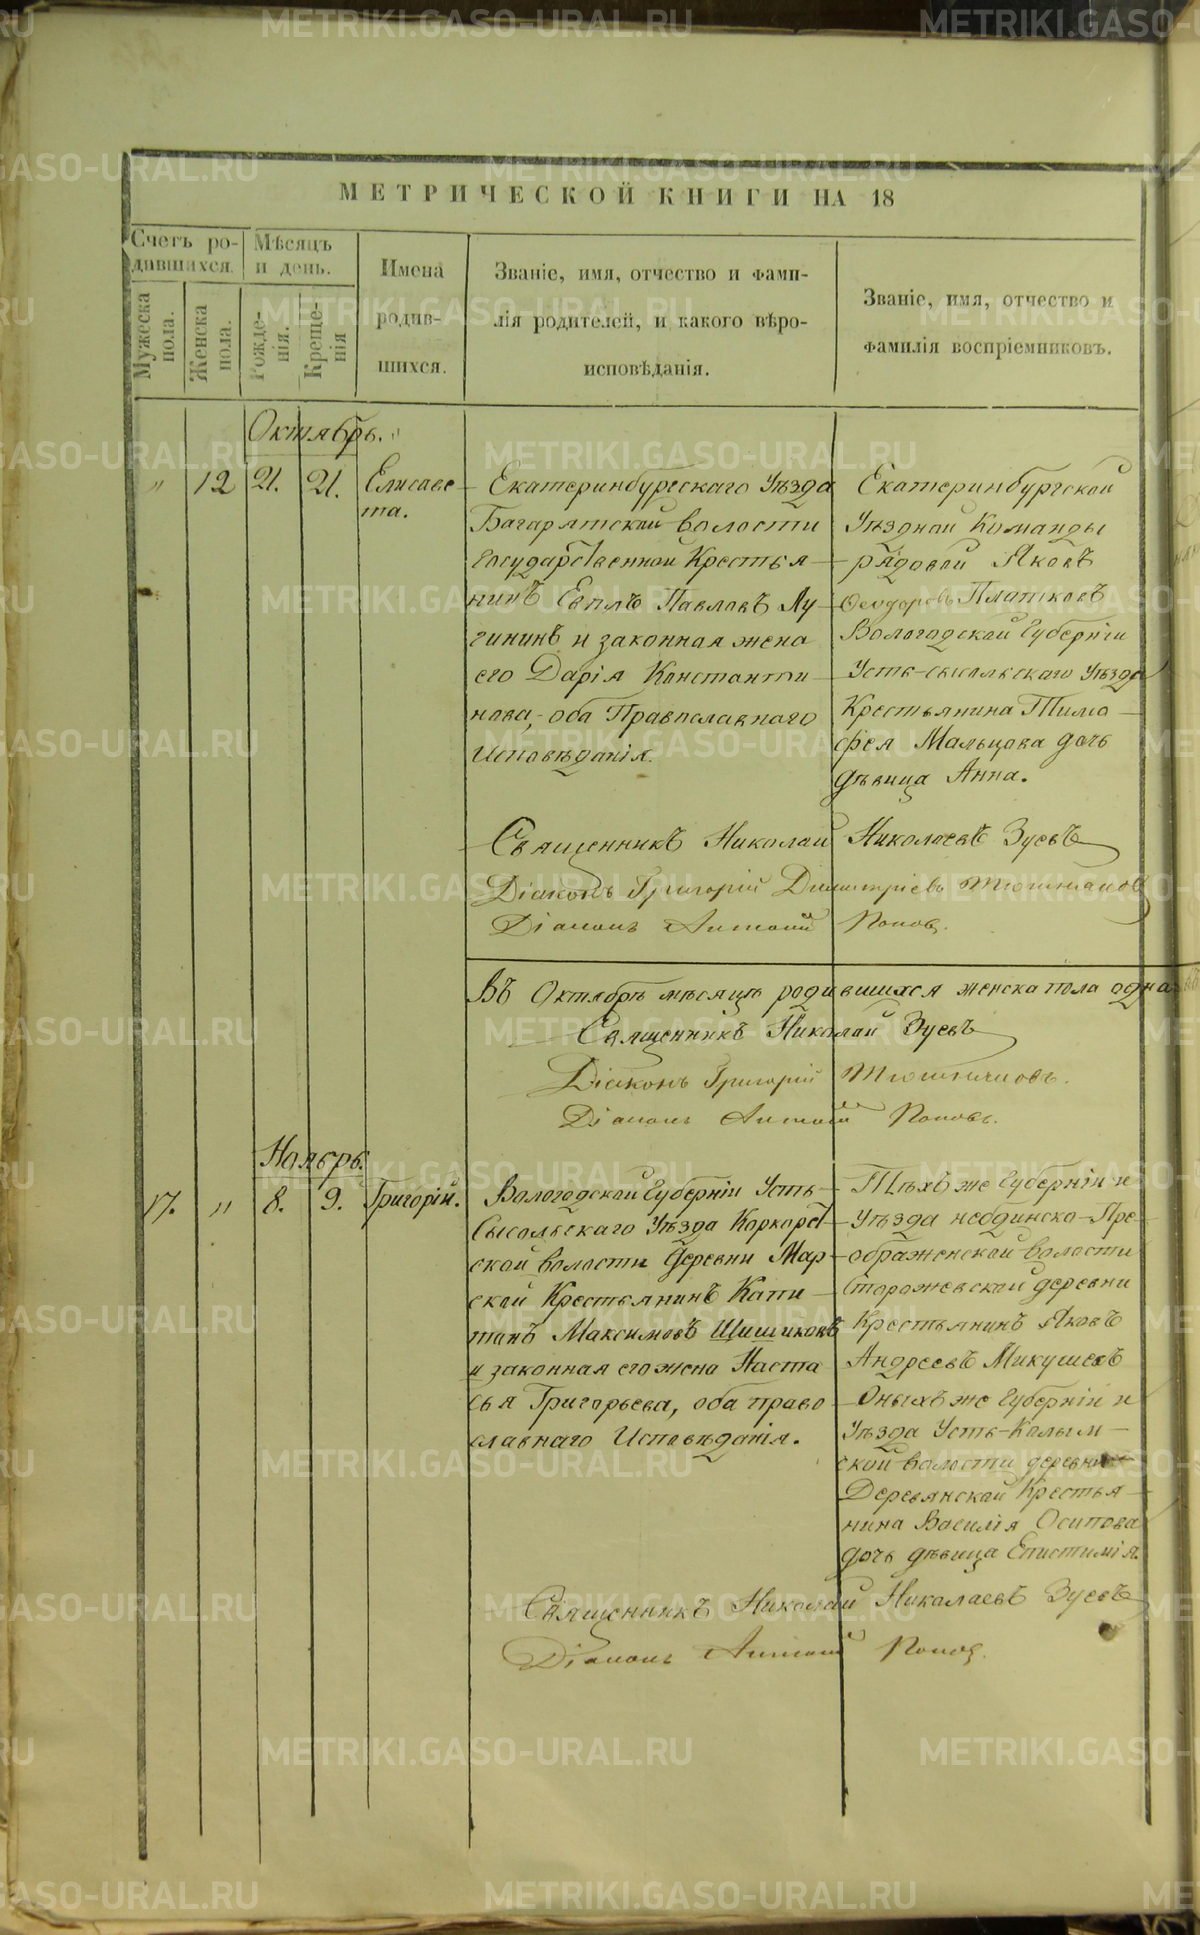 МЕТРИЧЕСКОЙ КНИГИ НА 18
Счетъ ро-
дившихся.
Мѣсяцъ
и день.
Мужеска
пола.
Женска
пола.
Рожде-
нія.
Креще-
нія
Имена
родив-
шихся.
Званіе, имя, отчество и фами-
лія родителей, и какого вѣро-
исповѣданія.
Званіе, имя, отчество и
фамилія воспріемниковъ.
Октябрь.
" 12 21. 21.
Елисаве
та.
Екатеринбургскаго Уѣзда
Багарятской волости
государственной Крестья
нинъ Евплъ Павловъ Лу
гининъ и законная жена
его Дарія Константи
нова, оба Православнаго
Исповѣданія.
Екатеринбургской
Уѣздной Команды
рядовой Яковъ
Ѳеодоровъ Платковъ
Вологодской Губерніи
Усть-сысольскаго Уѣзда
Крестьянина Тимо
фея Мальцова дочь
дѣвица Анна.
Священникъ Николай Николаевъ Зуевъ
Діаконъ Григорій Димитріевъ
Діаконъ Антоній Поповъ.
Въ Октябрѣ мѣсяцѣ родившихся женска пола одна
Священникъ Николай Зуевъ
Діаконъ Григорій
Діаконъ Антоній Поповъ.
Ноябрь.
17. " 8. 9. Григорій.
Вологодской Губерніи Усть
Сысольскаго Уѣзда
ской волости Деревни Мар
ской Крестьянинъ Капи
танъ Максимовъ Шишиковъ
и законная его жена Наста
сья Григорьева, оба право
славнаго Исповѣданія.
Тѣхъ же Губерніи и
Уѣзда небдинско-Пре
ображенской волости
Сторожевской деревни
Крестьянинъ Яковъ
Андреевъ Микушевъ
Оныхъ же Губерніи и
Уѣзда Усть-Колым
ской волости деревни
Деревянской Крестья
нина Василія Осипова
дочь дѣвица Епистимія.
Священникъ Николай Николаевъ Зуевъ
Діаконъ Антоній Поповъ.
METRIKI.GASO-URAL.RU